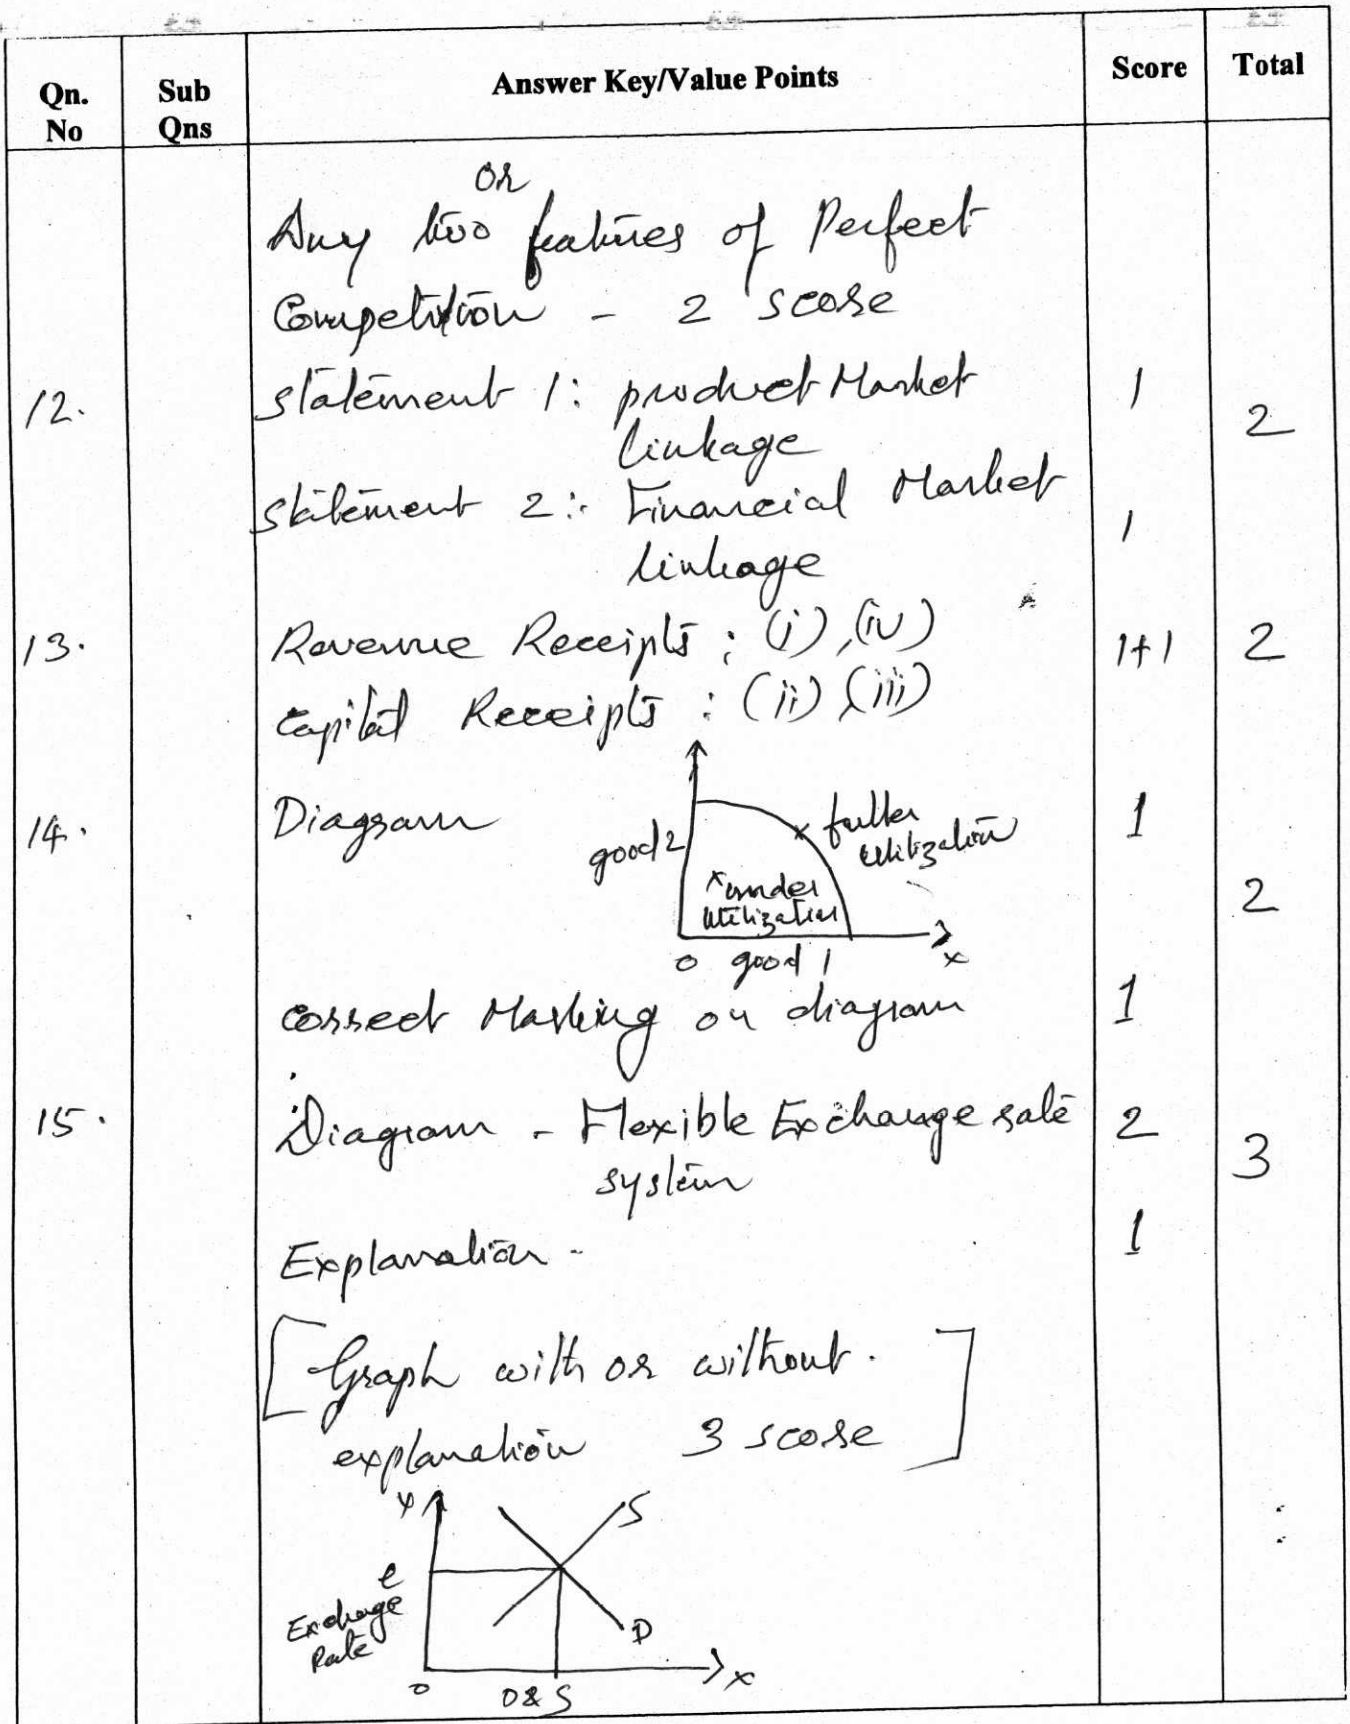 Qn. No Sub Qns Answer Key/Value Points Score Total
or
Any two features of Perfect
Competition - 2 score
12. Statement 1: product Market 1
linkage 2
Statement 2:- Financial Market
linkage 1
13. Revenue Receipts : (i), (iv) 1+1 2
Capital Receipts : (ii), (iii)
14. Diagram 1
good 2
fuller
utilization
x under
utilization
2
0 good 1 x
correct Marking on diagram 1
15. Diagram - Flexible Exchange rate 2
system 3
Explanation - 1
[Graph with or without.
explanation 3 score]
y S
e
Exchage
Rate
D
0 D & S x